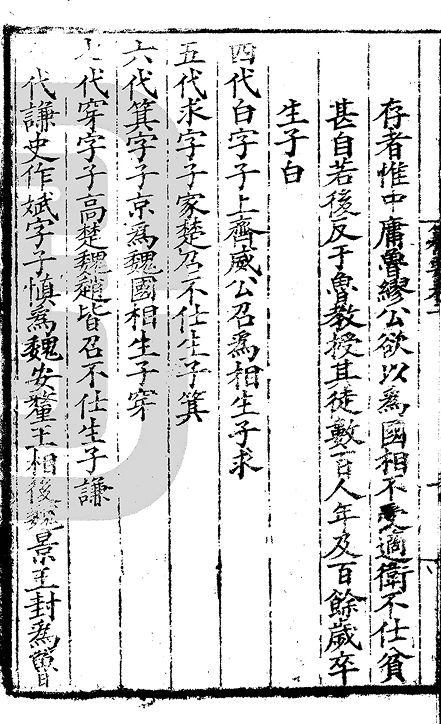 存者惟中庸魯繆公欲以爲國相不受適衛不仕貧
甚自若後反于魯教授其徒數百人年及百餘歲卒
生子白
四代白字子上齊威公召爲相生子求
五代求字子家楚召不仕生子箕
六代箕字子京爲魏國相生子穿
七代穿字子高楚魏趙皆召不仕生子謙
代謙史作斌字子慎爲魏安釐王相後魏景王封爲魯